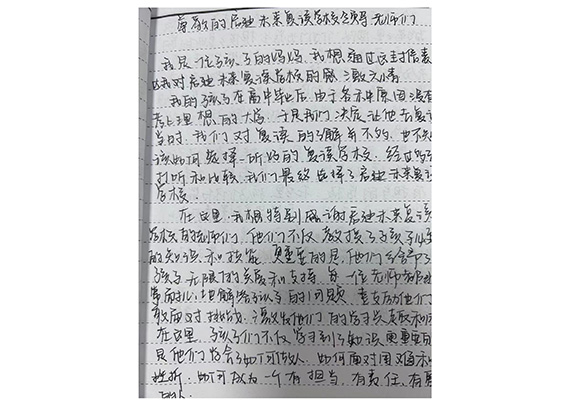 尊敬的启迪未来复读学校全体老师们
我是一位孩子的妈妈，我想通过这封信表
达我对启迪未来复读学校的感激之情
我的孩子在高中毕业后，由于各种原因没有
考上理想的大学，于是我们决定让他去复读
当时，我们对复读的了解并不多，也不知
该如何选择一所好的复读学校，经过多方
打听和比较，我们最终选择了启迪未来复读
学校.
在这里，我想特别感谢启迪未来复读
学校的老师们，他们不仅教授了孩子
的知识和技能，更重要的是，他们给予了
孩子无限的关爱和支持，每一位老师都
耐心地解答孩子的问题，
敢面对挑战，激发他们的学习兴趣和
在这里，孩子们不仅学习到了知识，更重要的
是他们学会了如何做人，如何面对困难和
挫折，如何成为一个有担当，有责任，有
的人.